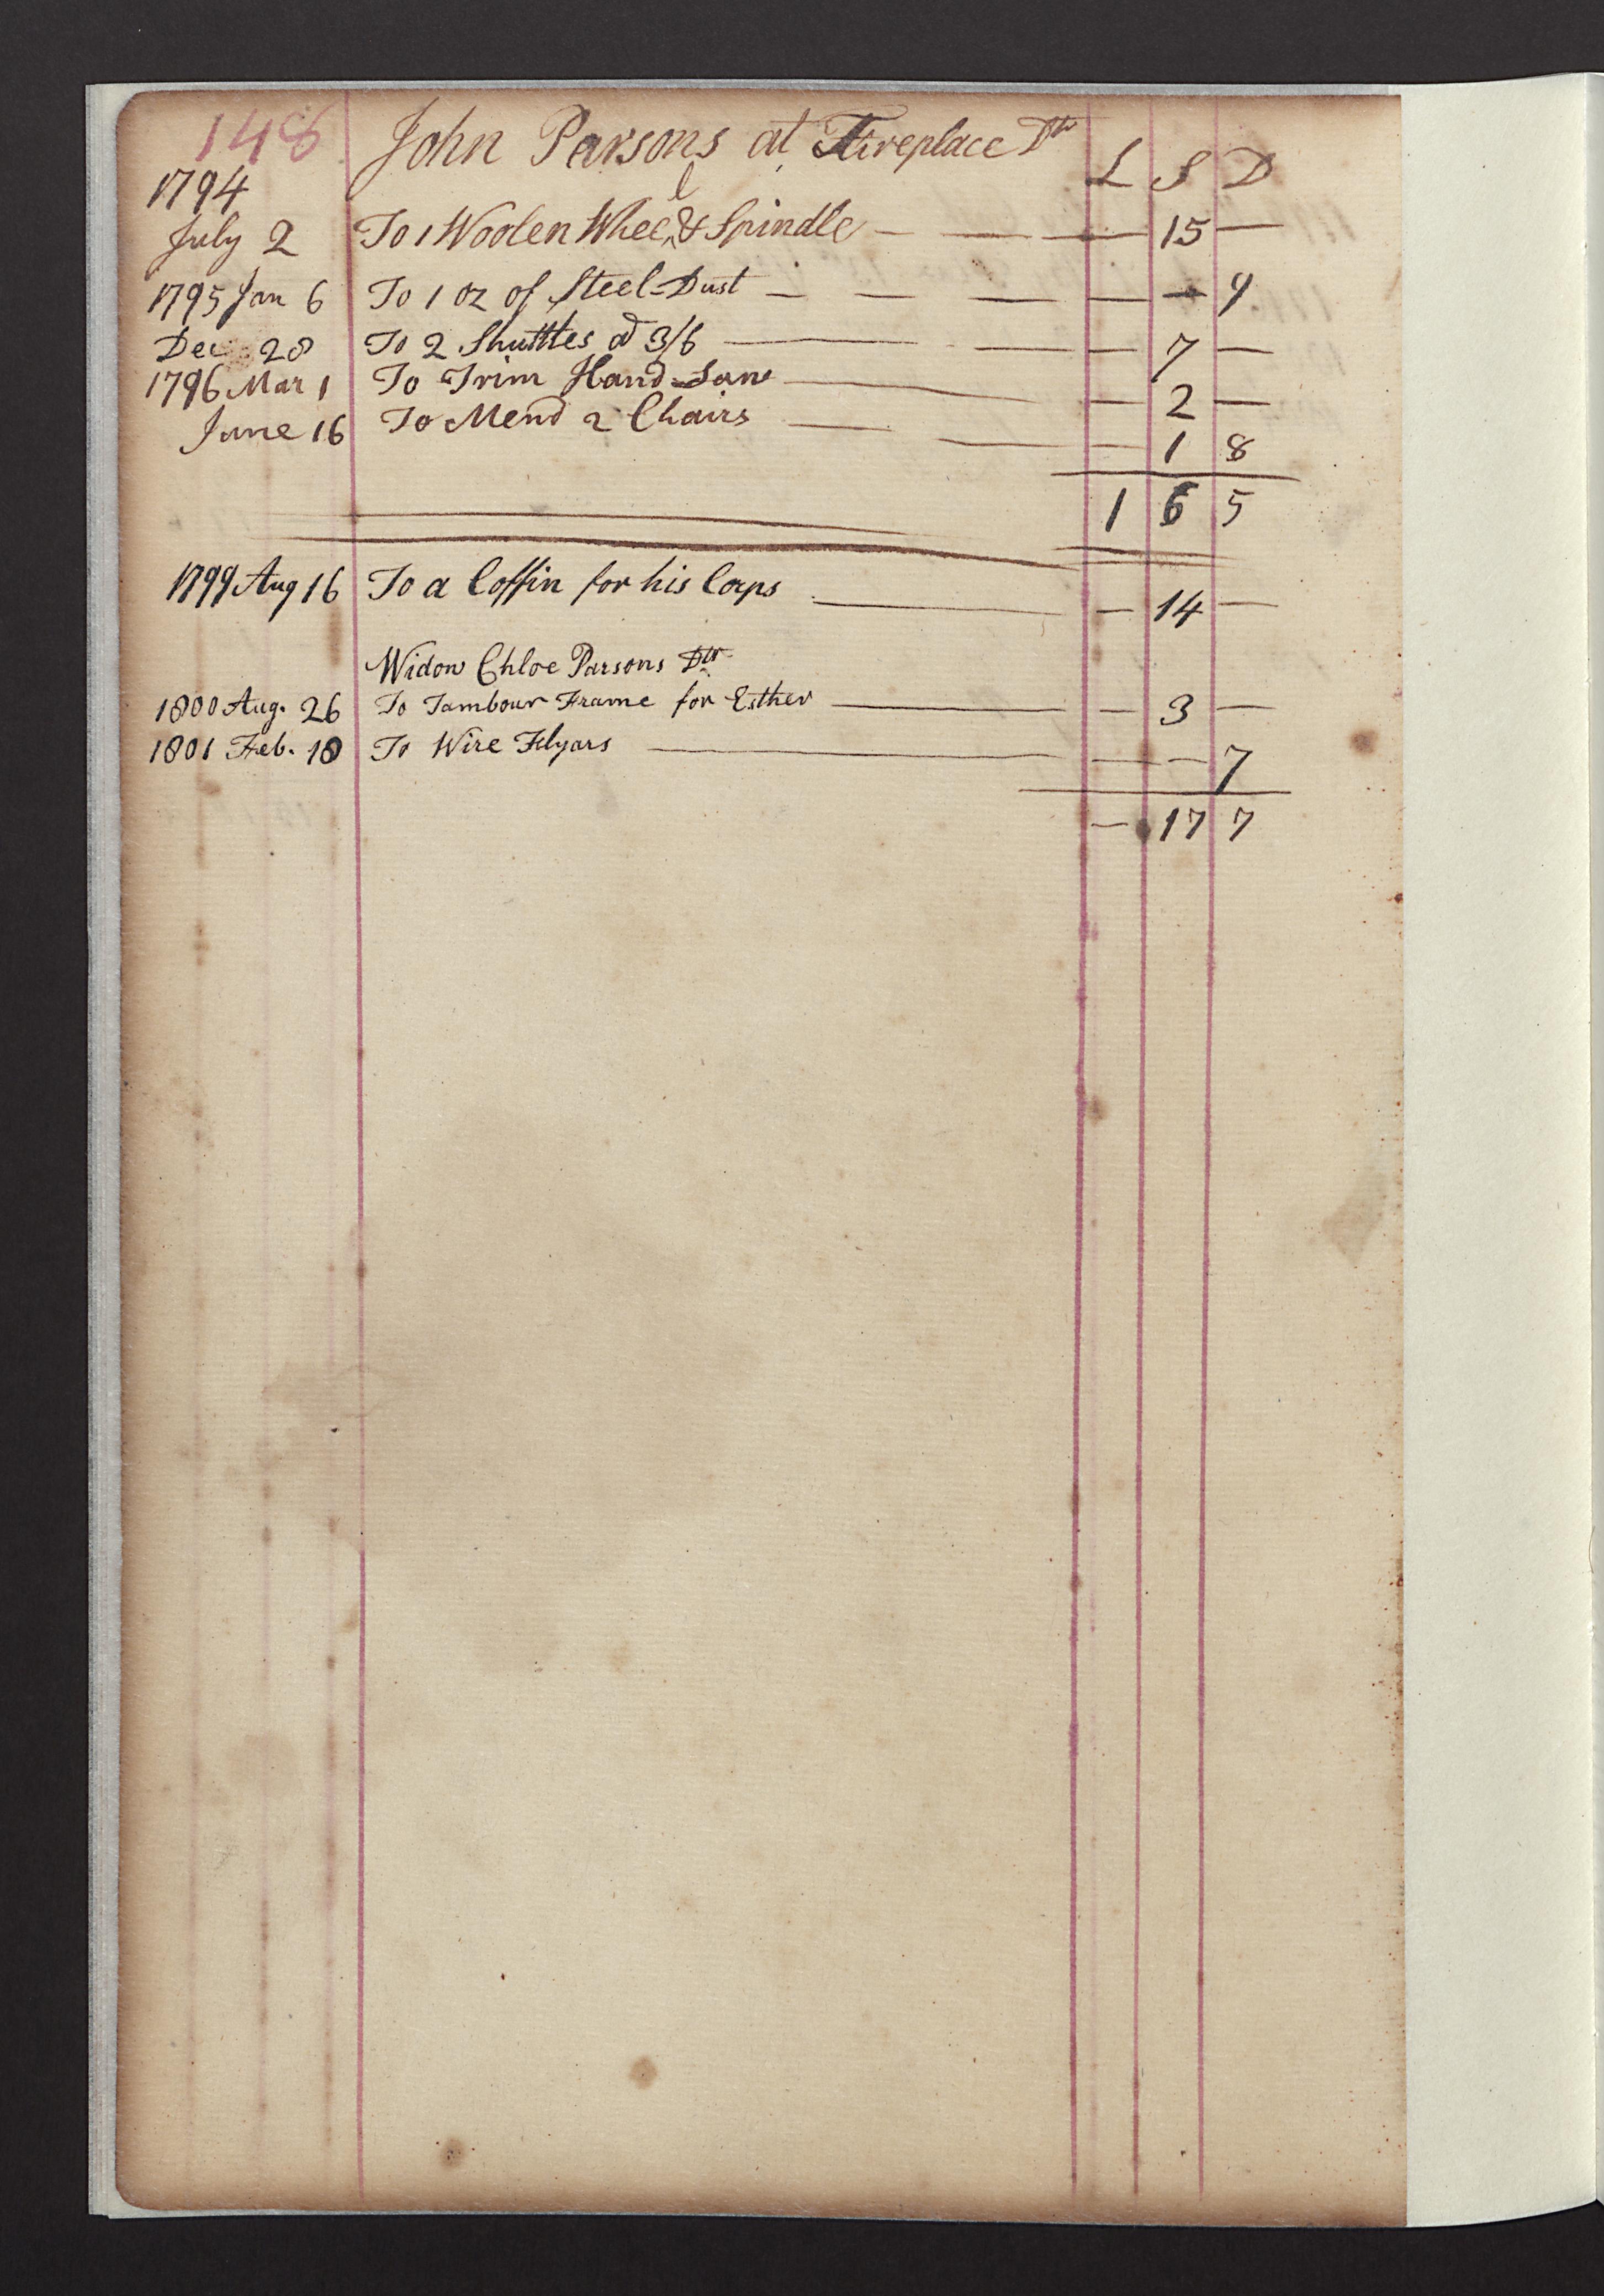 148 John Parsons at Fireplace Dr
L S D
1794
July 2 To 1 Woolen Wheel & Spindle — — — — 15 —
1795 Jan 6 To 1 oz of Steel-Dust — — — — — 9
Dec. 28 To 2 Shuttles at 3/6 — — — 7 —
1796 Mar 1 To Trim Hand=Saw — — 2 —
June 16 To Mend 2 Chairs — — — 1 8
1 6 5
1799 Aug 16 To a Coffin for his Corps — — 14 —
Widow Chloe Parsons Dr
1800 Aug. 26 To Tambour Frame for Esther — — 3 —
1801 Feb. 18 To Wire Flyars — — — 7
— 17 7